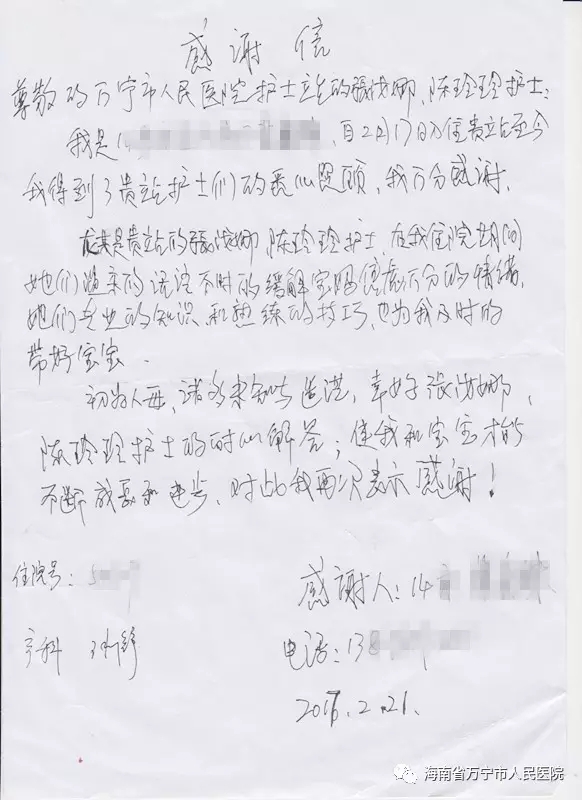 感谢信
尊敬的万宁市人民医院护士站的张淑娜、陈玲玲护士:
我是 ,自2月17日入住贵站至今
我得到了贵站护士们的悉心照顾,我万分感谢.
尤其是贵站的张淑娜 陈玲玲护士,在我住院期间
她们 的话语不时的缓解宝妈焦虑万分的情绪,
她们专业的知识和熟练的技巧,也为我及时的
带好宝宝.
初为人母,诸多未知与 ,幸好张淑娜、
陈玲玲护士的耐心解答;使我和宝宝才能
不断成长和进步,对此我再次表示感谢!
住院号:
感谢人:14
产科
电话:13
2.21.
海南省万宁市人民医院